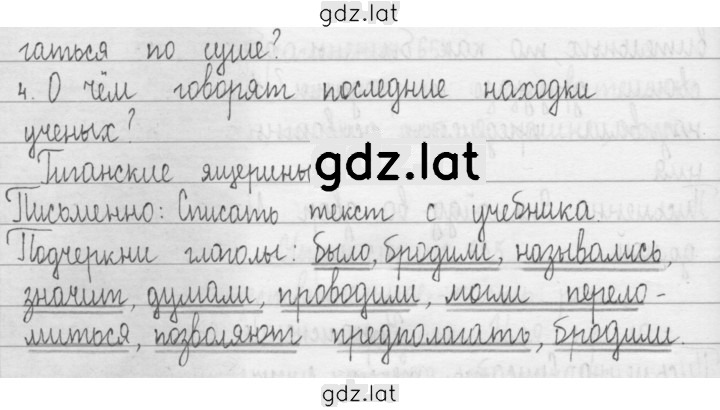 gdz.lat
гаться по суше?
4. О чём говорят последние находки
ученых?
Гиганские ящерины
gdz.lat
Письменно: Списать текст с учебника.
Подчеркни глаголы: было, бродили, назывались,
значит, думали, проводили, могли перело-
миться, позволяют предполагать, бродили.
gdz.lat